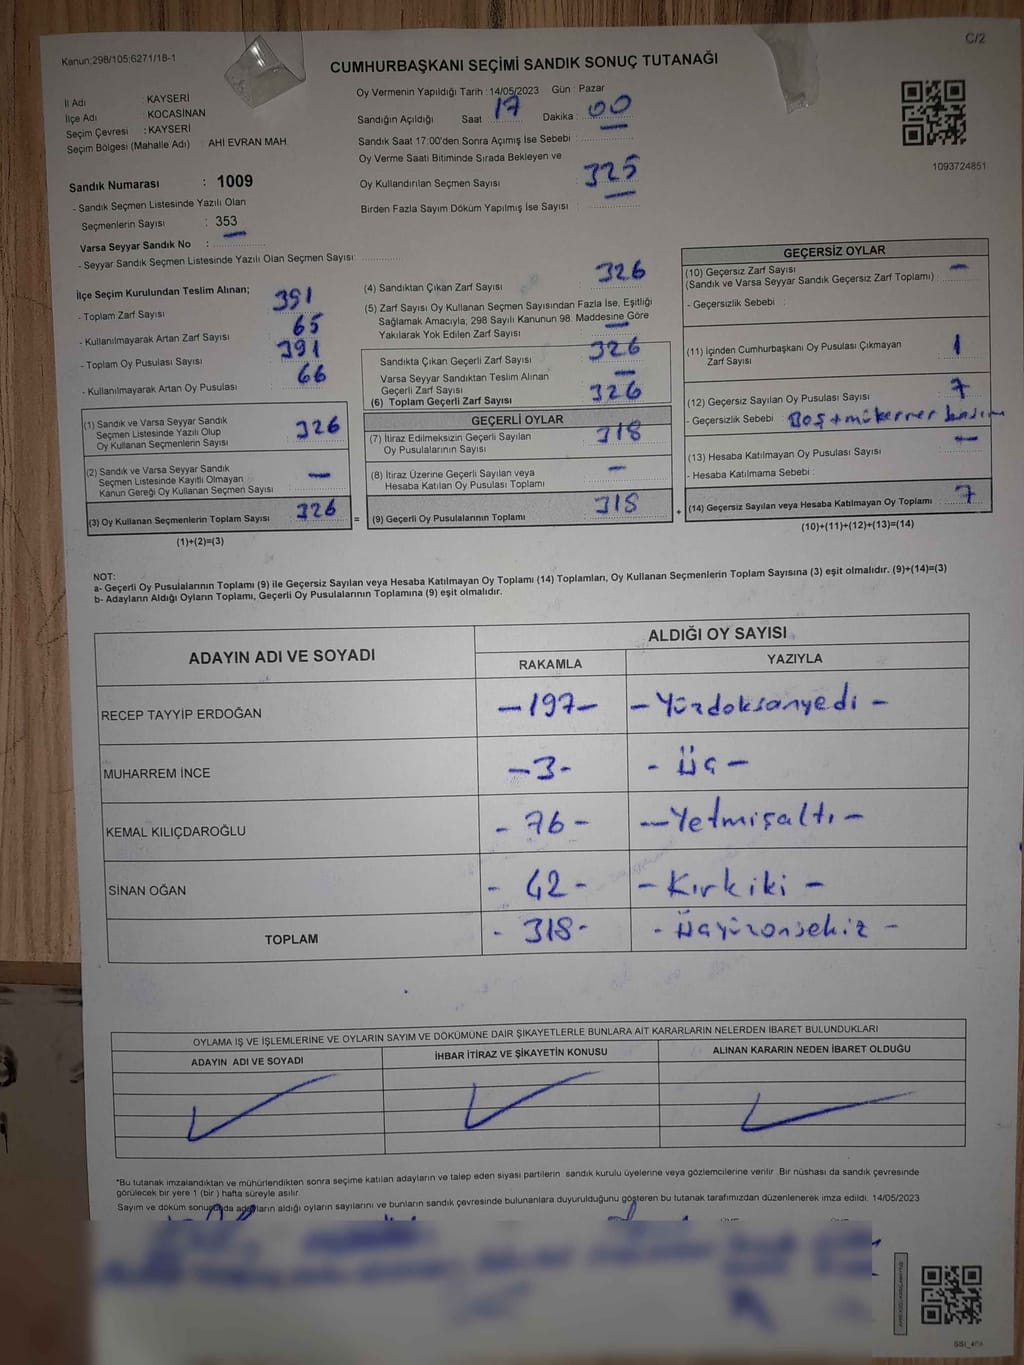 C/2
Kanun:298/105;6271/18-1
CUMHURBAŞKANI SEÇİMİ SANDIK SONUÇ TUTANAĞI
İl Adı : KAYSERİ
İlçe Adı : KOCASİNAN
Seçim Çevresi : KAYSERİ
Seçim Bölgesi (Mahalle Adı) AHİ EVRAN MAH.
Oy Vermenin Yapıldığı Tarih : 14/05/2023 Gün : Pazar
Sandığın Açıldığı Saat 17 Dakika : 00
Sandık Saat 17:00'den Sonra Açımış İse Sebebi :
Oy Verme Saati Bitiminde Sırada Bekleyen ve
Oy Kullandırılan Seçmen Sayısı : 325
Birden Fazla Sayım Döküm Yapılmış İse Sayısı :
1093724851
Sandık Numarası : 1009
- Sandık Seçmen Listesinde Yazılı Olan
Seçmenlerin Sayısı : 353
Varsa Seyyar Sandık No :
- Seyyar Sandık Seçmen Listesinde Yazılı Olan Seçmen Sayısı:
İlçe Seçim Kurulundan Teslim Alınan;
- Toplam Zarf Sayısı 391
- Kullanılmayarak Artan Zarf Sayısı 65
- Toplam Oy Pusulası Sayısı 391
- Kullanılmayarak Artan Oy Pusulası 66
(1) Sandık ve Varsa Seyyar Sandık
Seçmen Listesinde Yazılı Olup
Oy Kullanan Seçmenlerin Sayısı 326
(2) Sandık ve Varsa Seyyar Sandık
Seçmen Listesinde Kayıtlı Olmayan
Kanun Gereği Oy Kullanan Seçmen Sayısı —
(3) Oy Kullanan Seçmenlerin Toplam Sayısı 326
(1)+(2)=(3)
(4) Sandıktan Çıkan Zarf Sayısı 326
(5) Zarf Sayısı Oy Kullanan Seçmen Sayısından Fazla İse, Eşitliği
Sağlamak Amacıyla; 298 Sayılı Kanunun 98. Maddesine Göre
Yakılarak Yok Edilen Zarf Sayısı —
Sandıkta Çıkan Geçerli Zarf Sayısı 326
Varsa Seyyar Sandıktan Teslim Alınan
Geçerli Zarf Sayısı —
(6) Toplam Geçerli Zarf Sayısı 326
GEÇERLİ OYLAR
(7) İtiraz Edilmeksizin Geçerli Sayılan
Oy Pusulalarının Sayısı 318
(8) İtiraz Üzerine Geçerli Sayılan veya
Hesaba Katılan Oy Pusulası Toplamı —
= (9) Geçerli Oy Pusulalarının Toplamı 318 +
GEÇERSİZ OYLAR
(10) Geçersiz Zarf Sayısı —
(Sandık ve Varsa Seyyar Sandık Geçersiz Zarf Toplamı) :
- Geçersizlik Sebebi :
(11) İçinden Cumhurbaşkanı Oy Pusulası Çıkmayan
Zarf Sayısı 1
(12) Geçersiz Sayılan Oy Pusulası Sayısı 7
- Geçersizlik Sebebi : Boş + mükerrer
(13) Hesaba Katılmayan Oy Pusulası Sayısı —
- Hesaba Katılmama Sebebi :
(14) Geçersiz Sayılan veya Hesaba Katılmayan Oy Toplamı 7
(10)+(11)+(12)+(13)=(14)
NOT:
a- Geçerli Oy Pusulalarının Toplamı (9) ile Geçersiz Sayılan veya Hesaba Katılmayan Oy Toplamı (14) Toplamları, Oy Kullanan Seçmenlerin Toplam Sayısına (3) eşit olmalıdır. (9)+(14)=(3)
b- Adayların Aldığı Oyların Toplamı, Geçerli Oy Pusulalarının Toplamına (9) eşit olmalıdır.
ADAYIN ADI VE SOYADI
ALDIĞI OY SAYISI
RAKAMLA YAZIYLA
RECEP TAYYİP ERDOĞAN —197— —Yüzdoksanyedi—
MUHARREM İNCE —3- - Üç —
KEMAL KILIÇDAROĞLU - 76 - —Yetmişaltı—
SİNAN OĞAN - 42 - - Kırkiki -
TOPLAM - 318 - - Üçyüzonsekiz -
OYLAMA İŞ VE İŞLEMLERİNE VE OYLARIN SAYIM VE DÖKÜMÜNE DAİR ŞİKAYETLERLE BUNLARA AİT KARARLARIN NELERDEN İBARET BULUNDUKLARI
ADAYIN ADI VE SOYADI İHBAR İTİRAZ VE ŞİKAYETİN KONUSU ALINAN KARARIN NEDEN İBARET OLDUĞU
*Bu tutanak imzalandıktan ve mühürlendikten sonra seçime katılan adayların ve talep eden siyasi partilerin sandık kurulu üyelerine veya gözlemcilerine verilir. Bir nüshası da sandık çevresinde
görülecek bir yere 1 (bir) hafta süreyle asılır.
Sayım ve döküm sonucunda adayların aldığı oyların sayılarını ve bunların sandık çevresinde bulunanlara duyurulduğunu gösteren bu tutanak tarafımızdan düzenlenerek imza edildi. 14/05/2023